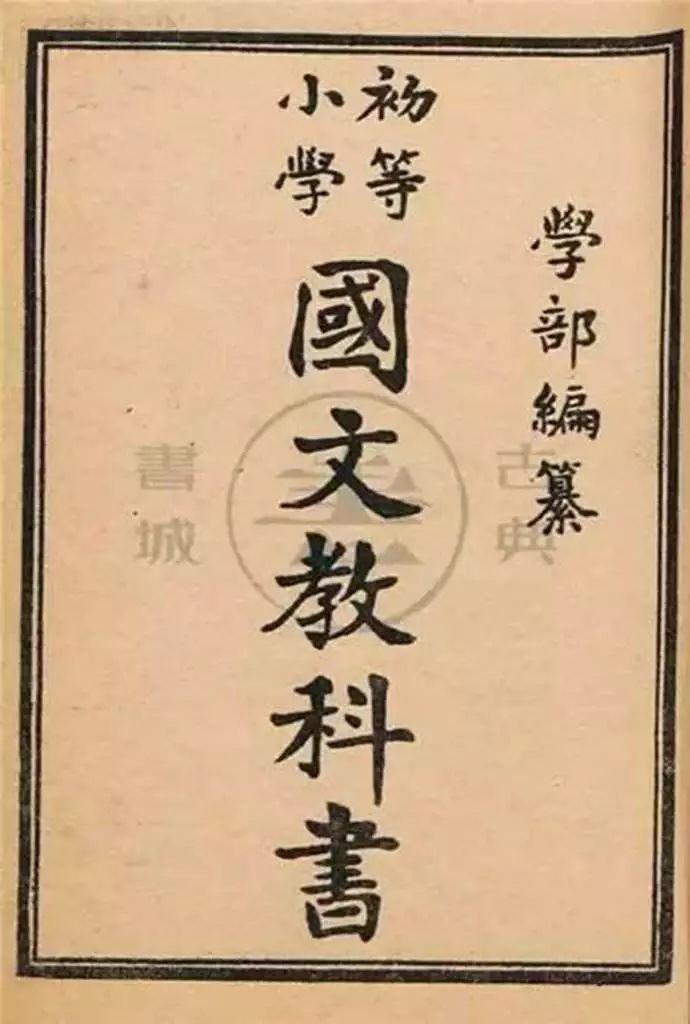 學部編纂
初等
小學
國文教科書
古典
書城